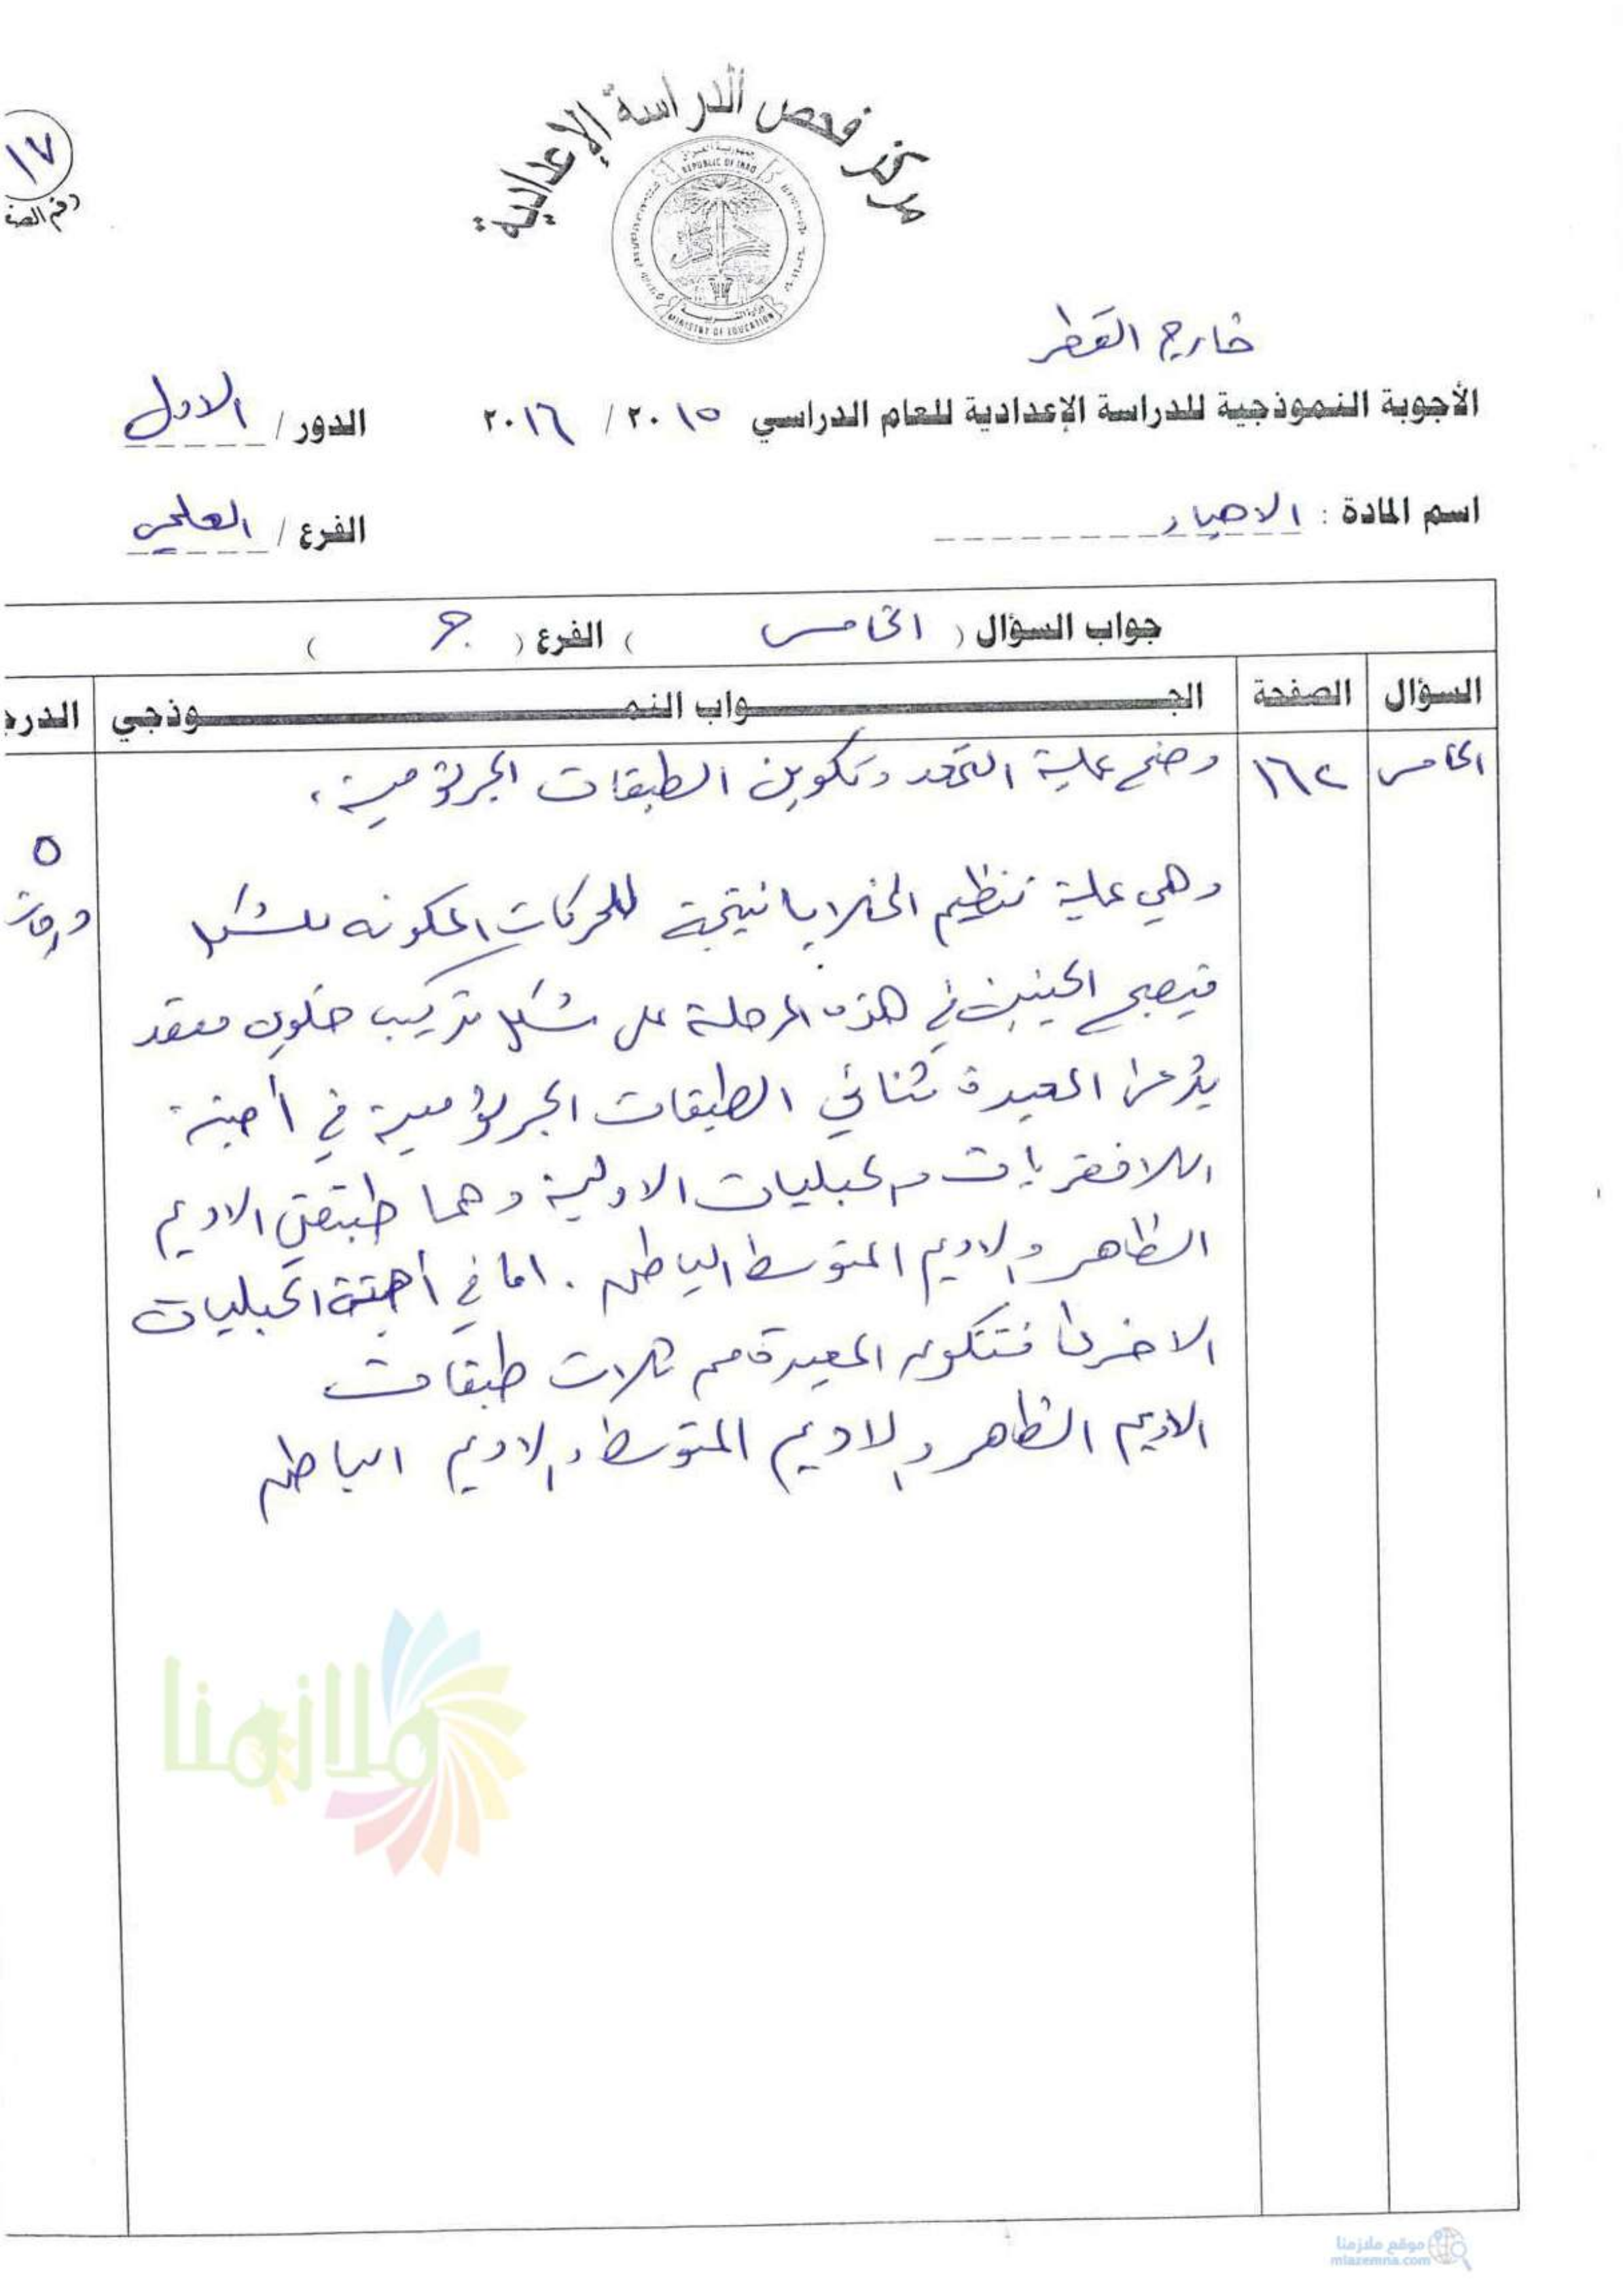 مركز فحص الدراسة الإعدادية
جمهورية العراق
REPUBLIC OF IRAQ
وزارة التربية
MINISTRY OF EDUCATION
١٧
رقم الصف
خارج القطر
الأجوبة النموذجية للدراسة الإعدادية للعام الدراسي ٢٠١٥ / ٢٠١٦ الدور / الاول
اسم المادة : الاحياء الفرع / العلمي
جواب السؤال ( الخامس ) الفرع ( جـ )
السؤال الصفحة الجـــواب النمـــوذجي الدرج
الخامس ١٦٢ وضح عملية التمعد وتكوين الطبقات الجرثومية.
٥
درجات
وهي عملية تنظيم الخلايا نتيجة للحركات المكونه للشكل
فيصبح الجنين في هذه المرحلة على شكل تركيب خلوي معقد
يدعى المعيدة ثنائي الطبقات الجرثومية في أجنة
اللافقريات والحبليات الاولية وهما طبقتي الاديم
الظاهر والاديم المتوسط الباطن . اما في أجنة الحبليات
الاخرى فتتكون المعيدة من ثلاث طبقات
الاديم الظاهر والاديم المتوسط والاديم الباطن
ملازمنا
موقع ملازمنا
mlazemna.com